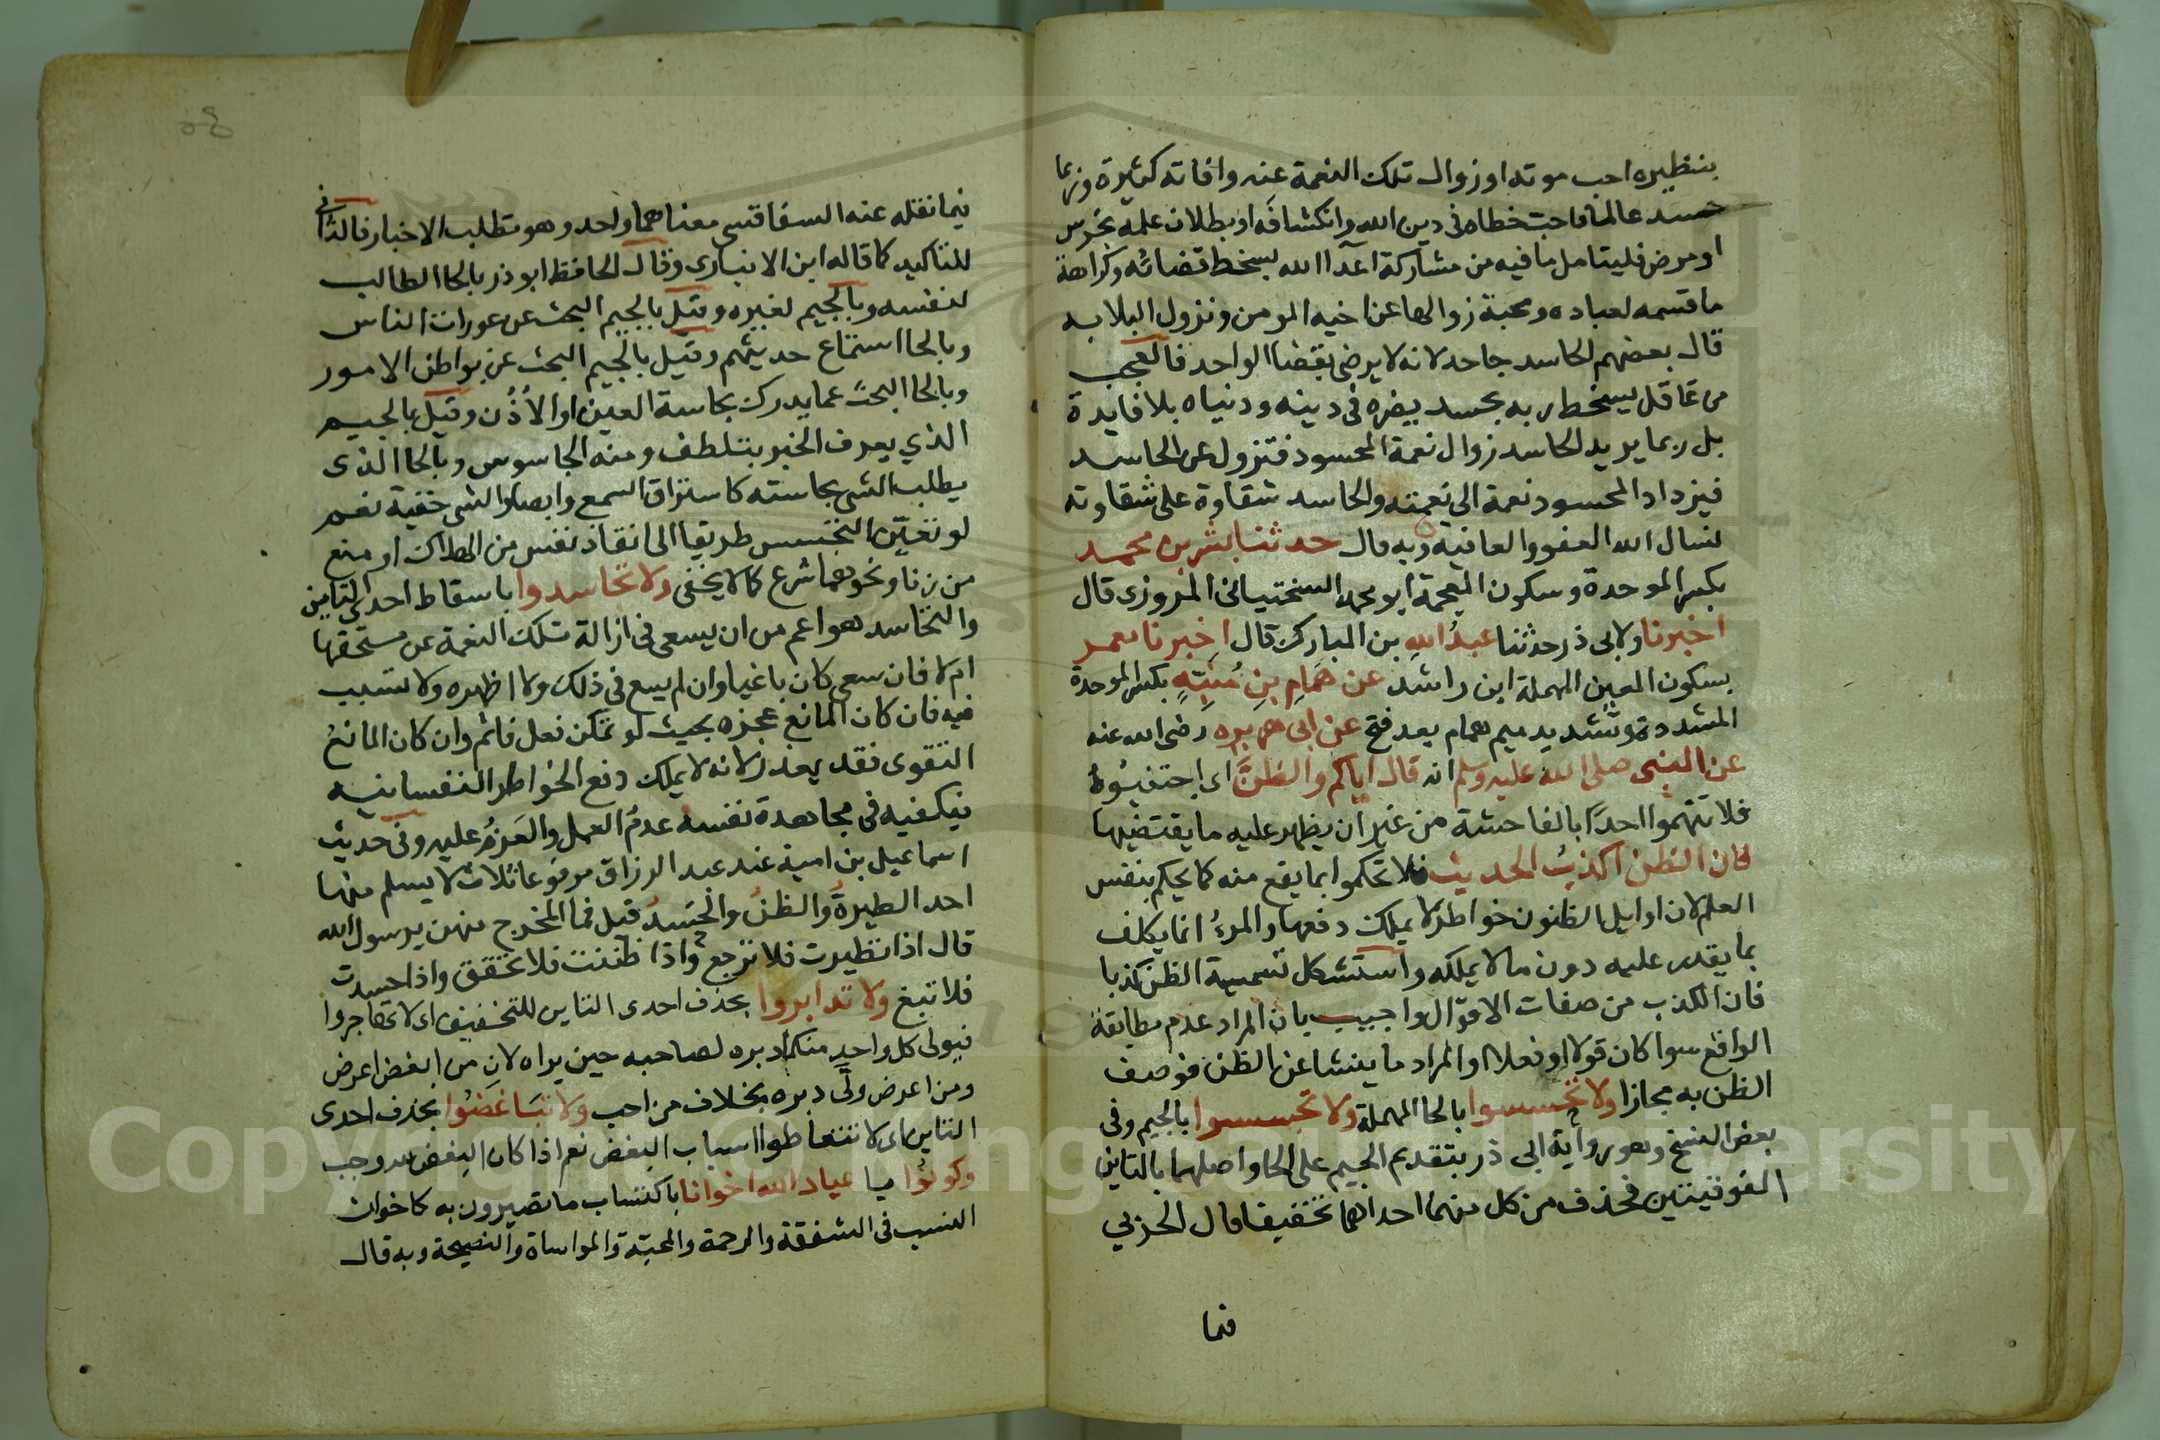 بنظيره احب موته او زوال تلك النعمة عنه وافاته كثيرة وربما
حسد عالما فاحب خطاه فى دين الله وانكشافه او بطلان علمه بخرس
او مرض فليتامل ما فيه من مشاركة اعدآ الله بسخط قضائه وكراهة
ما قسمه لعباده ومحبة زوالها عن اخيه المومن ونزول البلا به
قال بعضهم الحاسد جاحد لانه لا يرضى بقضا الواحد فالعجب
من عاقل يسخط ربه بحسد يضره فى دينه ودنياه بلا فايدة
بل ربما يريد الحاسد زوال نعمة المحسود فتزول عن الحاسد
فيزداد المحسود نعمة الى نعمته والحاسد شقاوة على شقاوته
نسال الله العفو والعافية وبه قال حدثنا بشر بن محمد
بكسر الموحدة وسكون المعجمة ابو محمد السختيانى المروزى قال
اخبرنا ولابى ذر حدثنا عبدُ اللهِ بن المبارك قال اخبرنا معمر
بسكون العين المهملة ابن راشد عن هَمامِ بنِ مُنَبِّهٍ بكسر الموحدة
المشددة وتشديد ميم همام بعد فتح عن ابى هريره رضى الله عنه
عن النبى صلى الله عليه وسلم انه قال اياكم والظنَّ اى اجتنبوهُ
فلا تتهموا احدًا بالفاحشة من غير ان يظهر عليه ما يقتضيها
فان الظن اكذبُ الحديث فلا تحكموا بما يقع منه كما يحكم بنفس
العلم لان اوايل الظنون خواطر لا يملك دفعها والمرءُ انما يكلف
بما يقدر عليه دون ما لا يملكه واستشكل تسمية الظن كذبا
فان الكذب من صفات الاقوال واجيب بان المراد عدم مطابقة
الواقع سوا كان قولا او فعلا او المراد ما ينشا عن الظن فوصف
الظن به مجازا ولا تحسسوا بالحا المهملة ولا تجسسوا بالجيم وفى
بعض النسخ وهو رواية ابى ذر بتقديم الجيم على الحا واصلهما بالتاين
الفوقيتين فحذف من كل منهما احداهما تخفيفا قال الحربي
فما
فيما نقله عنه السفاقسى معناهما واحد وهو تطلب الاخبار فالثانى
للتاكيد كما قاله ابن الانبارى وقال الحافظ ابو ذر بالحا الطالب
لنفسه وبالجيم لغيره وقيل بالجيم البحث عن عورات الناس
وبالحا استماع حديثهم وقيل بالجيم البحث عن بواطن الامور
وبالحا البحث عما يدرك بحاسة العين او الاُذُن وقيل بالجيم
الذي يعرف الخبر بتلطف ومنه الجاسوس وبالحا الذى
يطلب الشى بحاسته كاستراق السمع وابصار الشى خفية نعم
لو تعيّن التجسس طريقا الى انقاذ نفس من الهلاك او منع
من زنا ونحوهما شرع كما لا يخفى ولا تحاسدوا باسقاط احدى التاين
والتحاسد هو اعم من ان يسعى فى ازالة تلك النعمة عن مستحقها
ام لا فان سعى كان باغيا وان لم يسع فى ذلك ولا اظهره ولا تسبب
فيه فان كان المانع عجزه بحيث لو تمكن فعل فاثم وان كان المانع
التقوى فقد يعذر لانه لا يملك دفع الخواطر النفسانيه
فيكفيه فى مجاهدة نفسه عدمُ العمل والعَزمُ عليه وفى حديث
اسماعيل بن امية عند عبد الرزاق مرفوعا ثلاث لا يسلم منها
احد الطيرةُ والظنُ والحَسدُ قيل فما المخرج منهن يرسول الله
قال اذا تطيرت فلا ترجع واذا ظننت فلا تحقق واذا حسدت
فلا تبغ ولا تدابروا بحذف احدى التاين للتخفيف اى لا تهاجروا
فيولى كل واحدٍ منكم دبره لصاحبه حين يراه لان من ابغض اعرض
ومن اعرض ولَّى دبره بخلاف من احب ولا تبَاغضُوا بحذف احدى
التاين اى لا تتعاطوا اسباب البغض نعم اذا كان البغض لله وجب
وكونُوا يا عباد الله اخوانا باكتساب ما تصيرون به كاخوان
النسب فى الشفقة والرحمة والمحبّة والمواساة والنصيحة وبه قال
Copyright © King Saud University